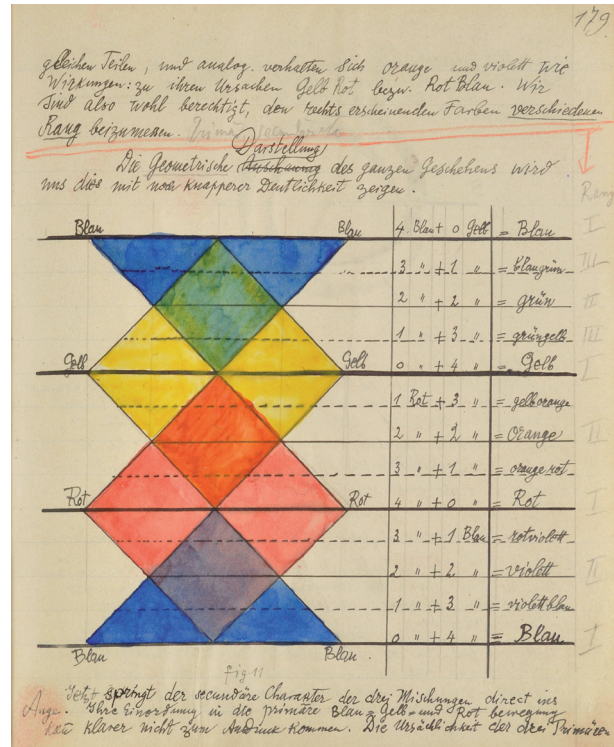 179
gleichen Teilen, und analog. verhalten sich orange und violett wie
Wirkungen: zu ihren Ursachen Gelb Rot bezw. Rot Blau. Wir
sind also wohl berechtigt, den rechts erscheinenden Farben verschiedenen
Rang beizumessen.
Darstellung
Die Geometrische Anschauung des ganzen Geschehens wird
uns dies mit noch knapperer Deutlichkeit zeigen.
Rang
Blau Blau 4 Blau + 0 Gelb = Blau I
3 " + 1 " = blaugrün III
2 " + 2 " = grün II
1 " + 3 " = grüngelb III
Gelb Gelb 0 " + 4 " = Gelb I
1 Rot + 3 " = gelborange
2 " + 2 " = Orange II
3 " + 1 " = orangerot
Rot Rot 4 " + 0 " = Rot I
3 " + 1 Blau = rotviolett
2 " + 2 " = violett II
1 " + 3 " = violettblau
0 " + 4 " = Blau I
Blau Blau
fig 11
Jetzt springt der secundäre Charakter der drei Mischungen direct ins
Auge. Ihre Einordnung in die primäre Blau- Gelb- und Rot bewegung
kann klarer nicht zum Ausdruck kommen. Die Ursächlichkeit der drei Primären